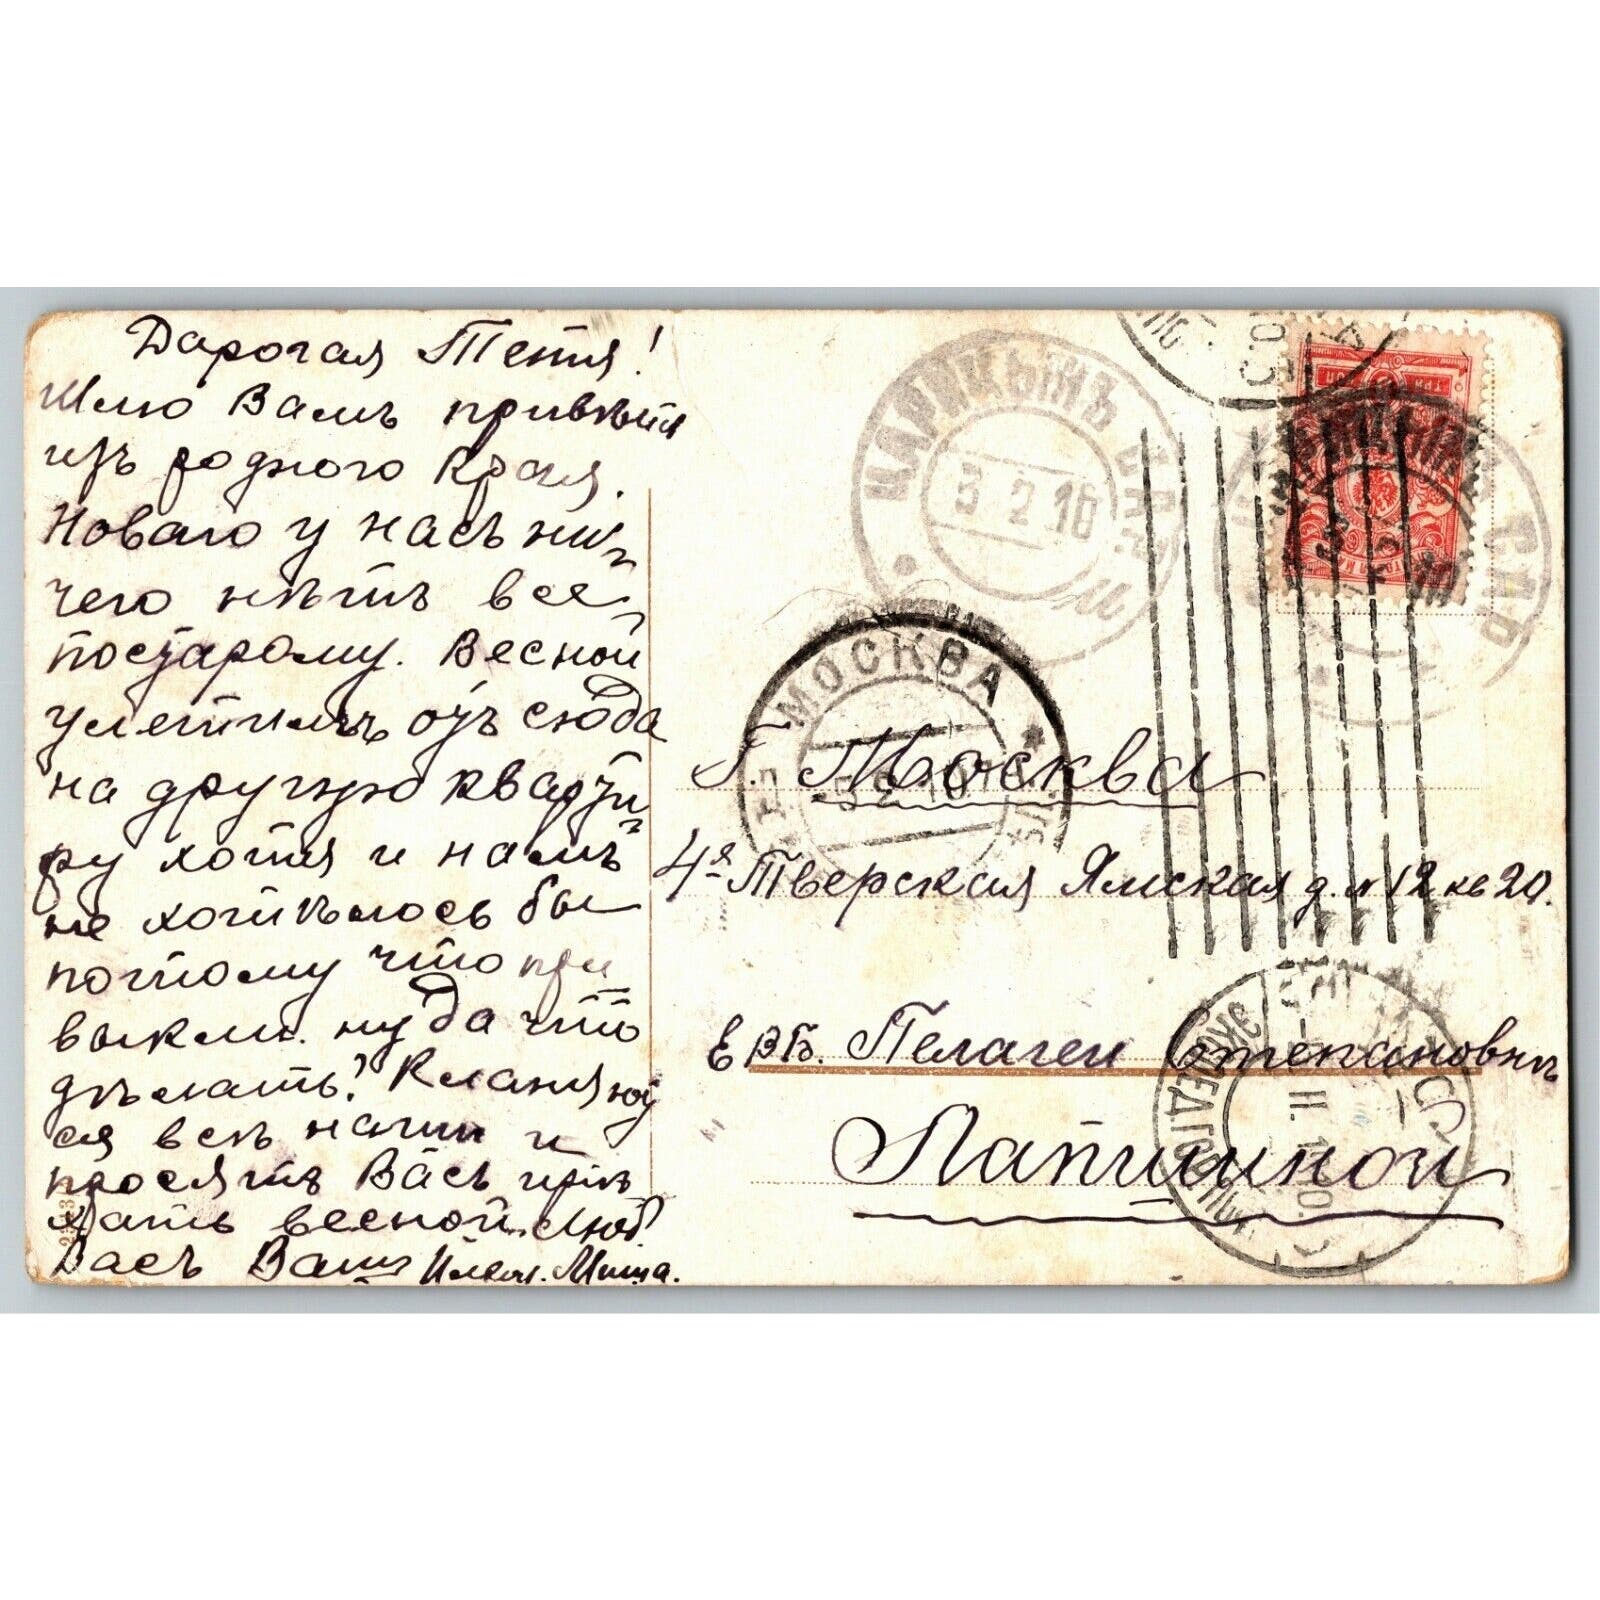 Дарогая Тетя!
Шлю Вамъ привѣтъ
изъ родного края.
Новаго у насъ ни-
чего нѣтъ всё
постарому. Весной
улетимъ отъ сюда
на другую кварти-
ру хотя и намъ
не хотѣлось бы
потому что при
выкли. ну да что
дѣлать? Кланяют
ся всѣ наши и
просятъ Васъ приѣ
хать весной. Люб.
Васъ Ваш Плем. Миша.
ЦАРИЦЫНЪ САР.
3 2 16
МОСКВА
Г. Москва
4я Тверская Ямская д. № 12 кв 20.
Е ВБ. Пелагеи Степановнѣ
Лапшиной
ЭКСПЕД. ГОР.
ТРИ КОП